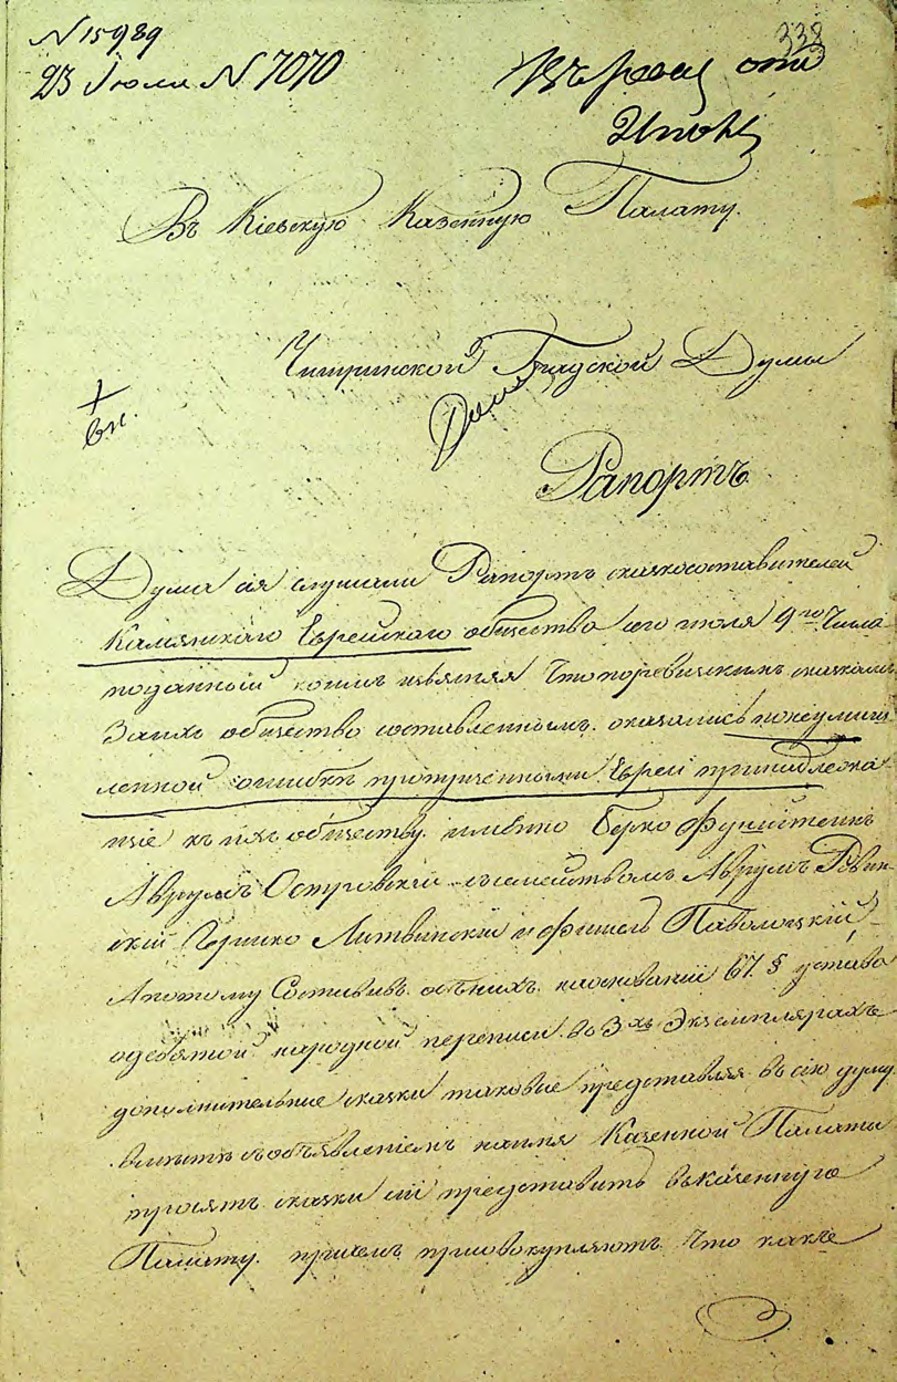 N 15989
338
23 Июля N 7070
Въ Кіевскую Казенную Палату.
Чигринской Градской Думы
+
вн.
Рапортъ
Дума сія слушали Рапортъ сказкосоставителей
Камянскаго Еврейскаго общества сего июля 9го Числа
поданный коимъ изъясняя Что поревизскимъ сказкамъ
Заихъ общество составленнымъ оказались понеумыш
ленной ошибкѣ пропущенными Евреи принадлежа
щіе къ ихъ обществу имѣнно Берко Функштеинъ
Аврумъ Островскій съ семействомъ Аврумъ Ровин-
скій Гершко Литвинскій и Фишель Паволоцкій,
Апотому Составивъ объ нихъ наосновании 67. § устава
одевятой народной переписи во 3хъ Экземплярахъ
дополнительные сказки таковые представляя въ сію думу
вместѣ собъявлениемъ наимя Казенной Палаты
просятъ сказки сіи представить вКазенную
Палату. причемъ присовокупляютъ Что какъ